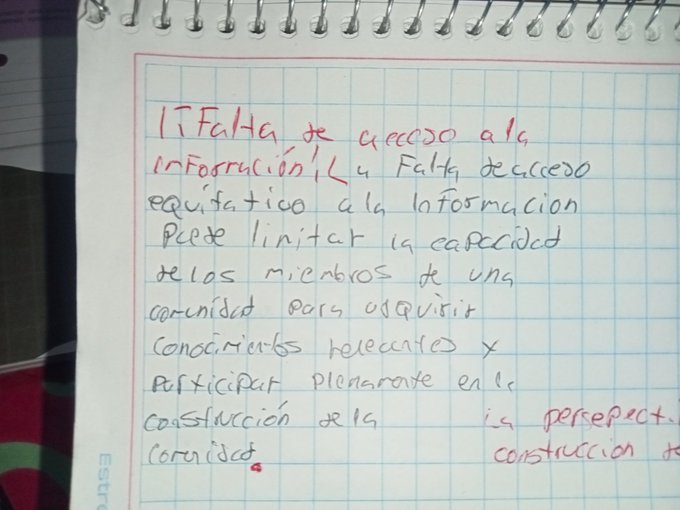 1┬ Falta de acceso a la
información', La Falta de acceso
equitatico a la Informacion
Puede limitar la capacidad
de los miembros de una
comunidad para adquirir
Conocimientos relevantes y
Participar Plenamente en la
construcción de la
Comunidad.
la persepect.
construccion de
Estre